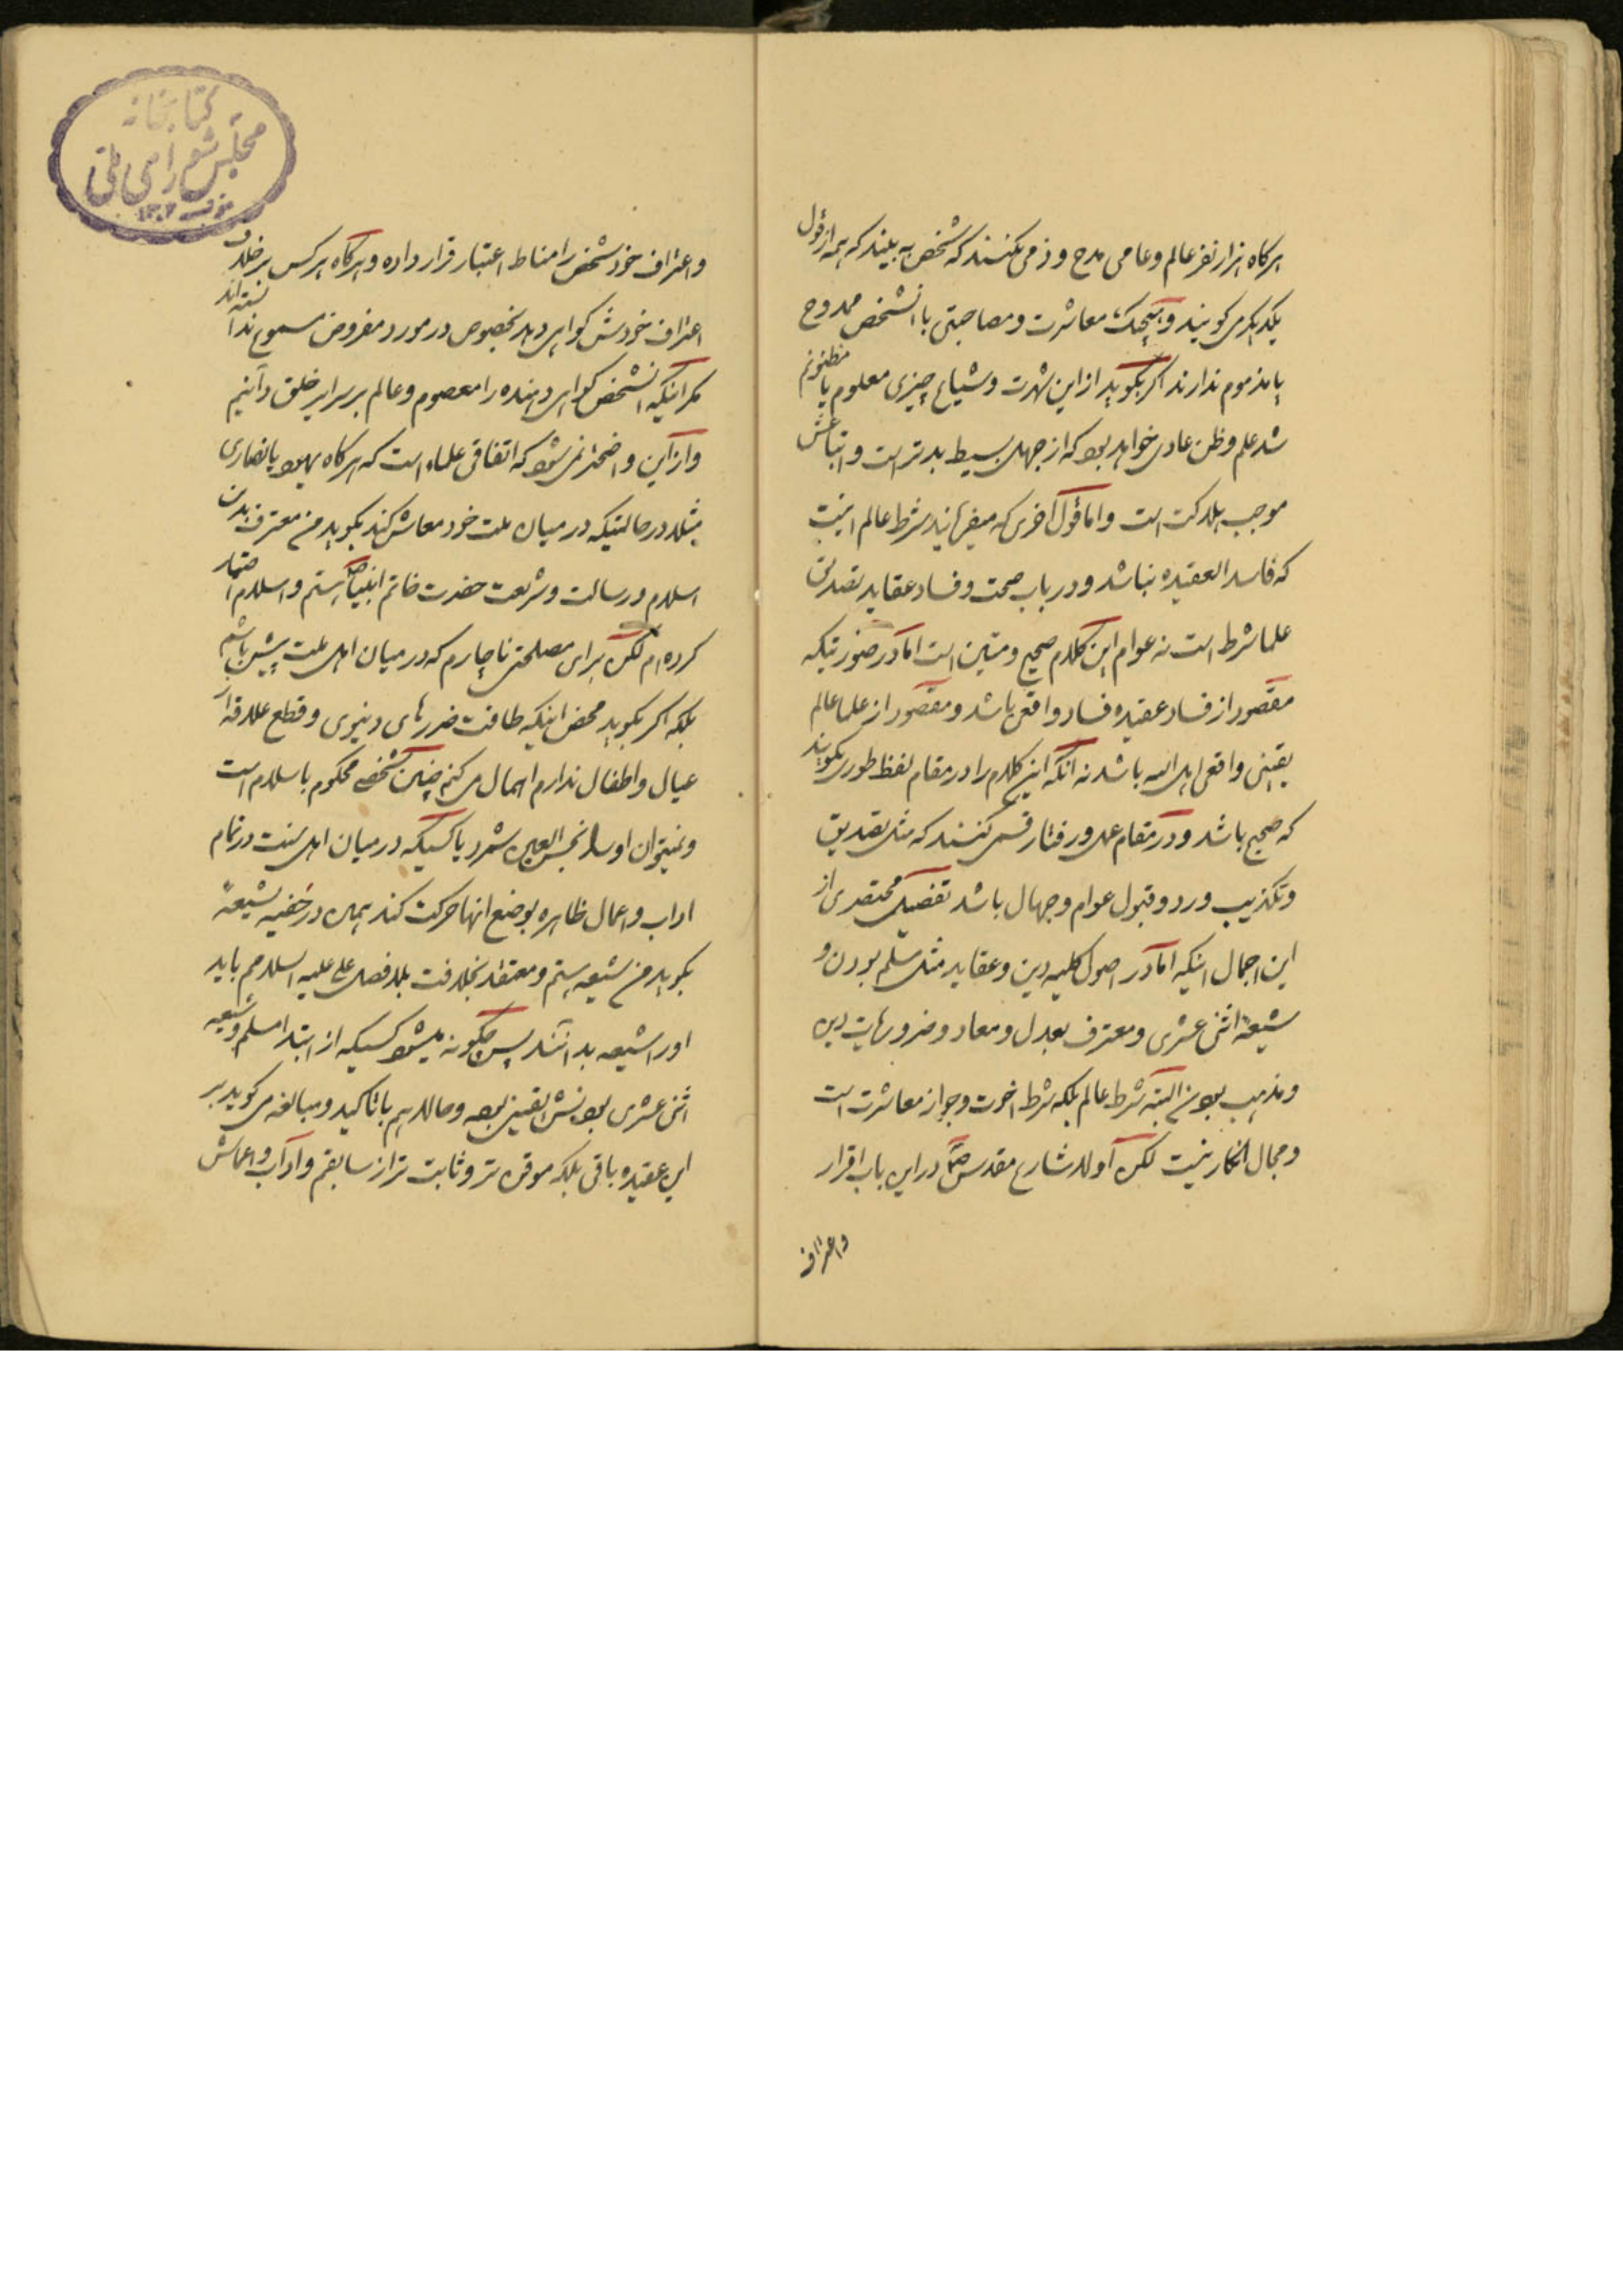 هرگاه هزار نفر عالم و عامی مدح و ذمی بکنند که شخص به بیند که همه از قول
یکدیگر می کویند و هیچیک معاشرت و مصاحبتی با انشخص ممدوح
یا مذموم ندارند اکر بکوید از این شهرت و شیاع چیزی معلوم یا مظنونم
شد علم و ظن عادی خواهد بود که از جهل بسیط بدتر است و اتباعش
موجب هلاکت است و اما قول آخری که میفرمایند شرط عالم اینست
که فاسد العقیده نباشد و در باب صحت و فساد عقاید تصدیق
علما شرط است نه عوام این کلام صحیح و متین است اما در صورتیکه
مقصود از فساد عقیده فساد واقعی باشد و مقصود از علما عالم
یقینی واقعی اهل الله باشد نه آنکه این کلام را در مقام لفظ طوری بکویند
که صحیح باشد و در مقام عمل و رفتار قسمی کنند که مثل تصدیق
و تکذیب و رد و قبول عوام و جهال باشد تفصیل مختصری از
این اجمال اینکه اما در اصول کلیه دین و عقاید مثل مسلم بودن و
شیعهٔ اثنی عشری و معترف بعدل و معاد و ضروریات دین
و مذهب بودن البته شرط عالم بلکه شرط اخوت و جواز معاشرت است
و مجال انکار نیست لکن اولا شارع مقدس ص در این باب اقرار
و اعتراف
کتابخانه
مجلس شورای ملی
و اعتراف خود شخص را مناط اعتبار قرار داده و هرگاه هرکس بر خلاف
اعتراف خودش کواهی دهد بخصوص در مورد مفروض مسموع ندانسته اند
مکر اینکه انشخص کواهی دهنده را معصوم و عالم بر سرایر خلق دانیم
و از این واضحتر نمی شود که اتفاقی علماء است که هرکاه یهود یا نصاری
مثلا در حالتیکه در میان ملت خود معاش کند بکوید من معترف بدین
اسلام و رسالت و شریعت حضرت خاتم انبیا ص هستم و اسلام اختیار
کرده ام لکن برای مصلحتی ناچارم که در میان اهل ملت پیش باشم
بلکه اکر بکوید محض اینکه طاقت ضررهای دنیوی و قطع علاقه از
عیال و اطفال ندارم اهمال می کنم چنین شخصی محکوم باسلام است
و نمیتوان او را نجس العین شمرد یا کسیکه در میان اهل سنت در تمام
اداب و اعمال ظاهره بوضع انها حرکت کند همین در خفیه بشیعهٔ
بکوید من شیعه هستم و معتقد بخلافت بلافصل علی علیه السلام هم باید
او را شیعه بدانند پس چکونه میشود کسیکه از ابتدا مسلم و شیعه
اثنی عشری بودنش یقینی بوده و حالا هم با تاکید و مبالغه می کوید بر
این عقیده باقی بلکه موقن تر و ثابت تر از سابقم و آداب و اعمالش